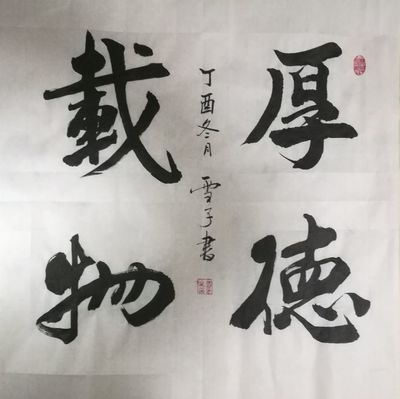 厚德
載物
丁酉冬月 雪子書